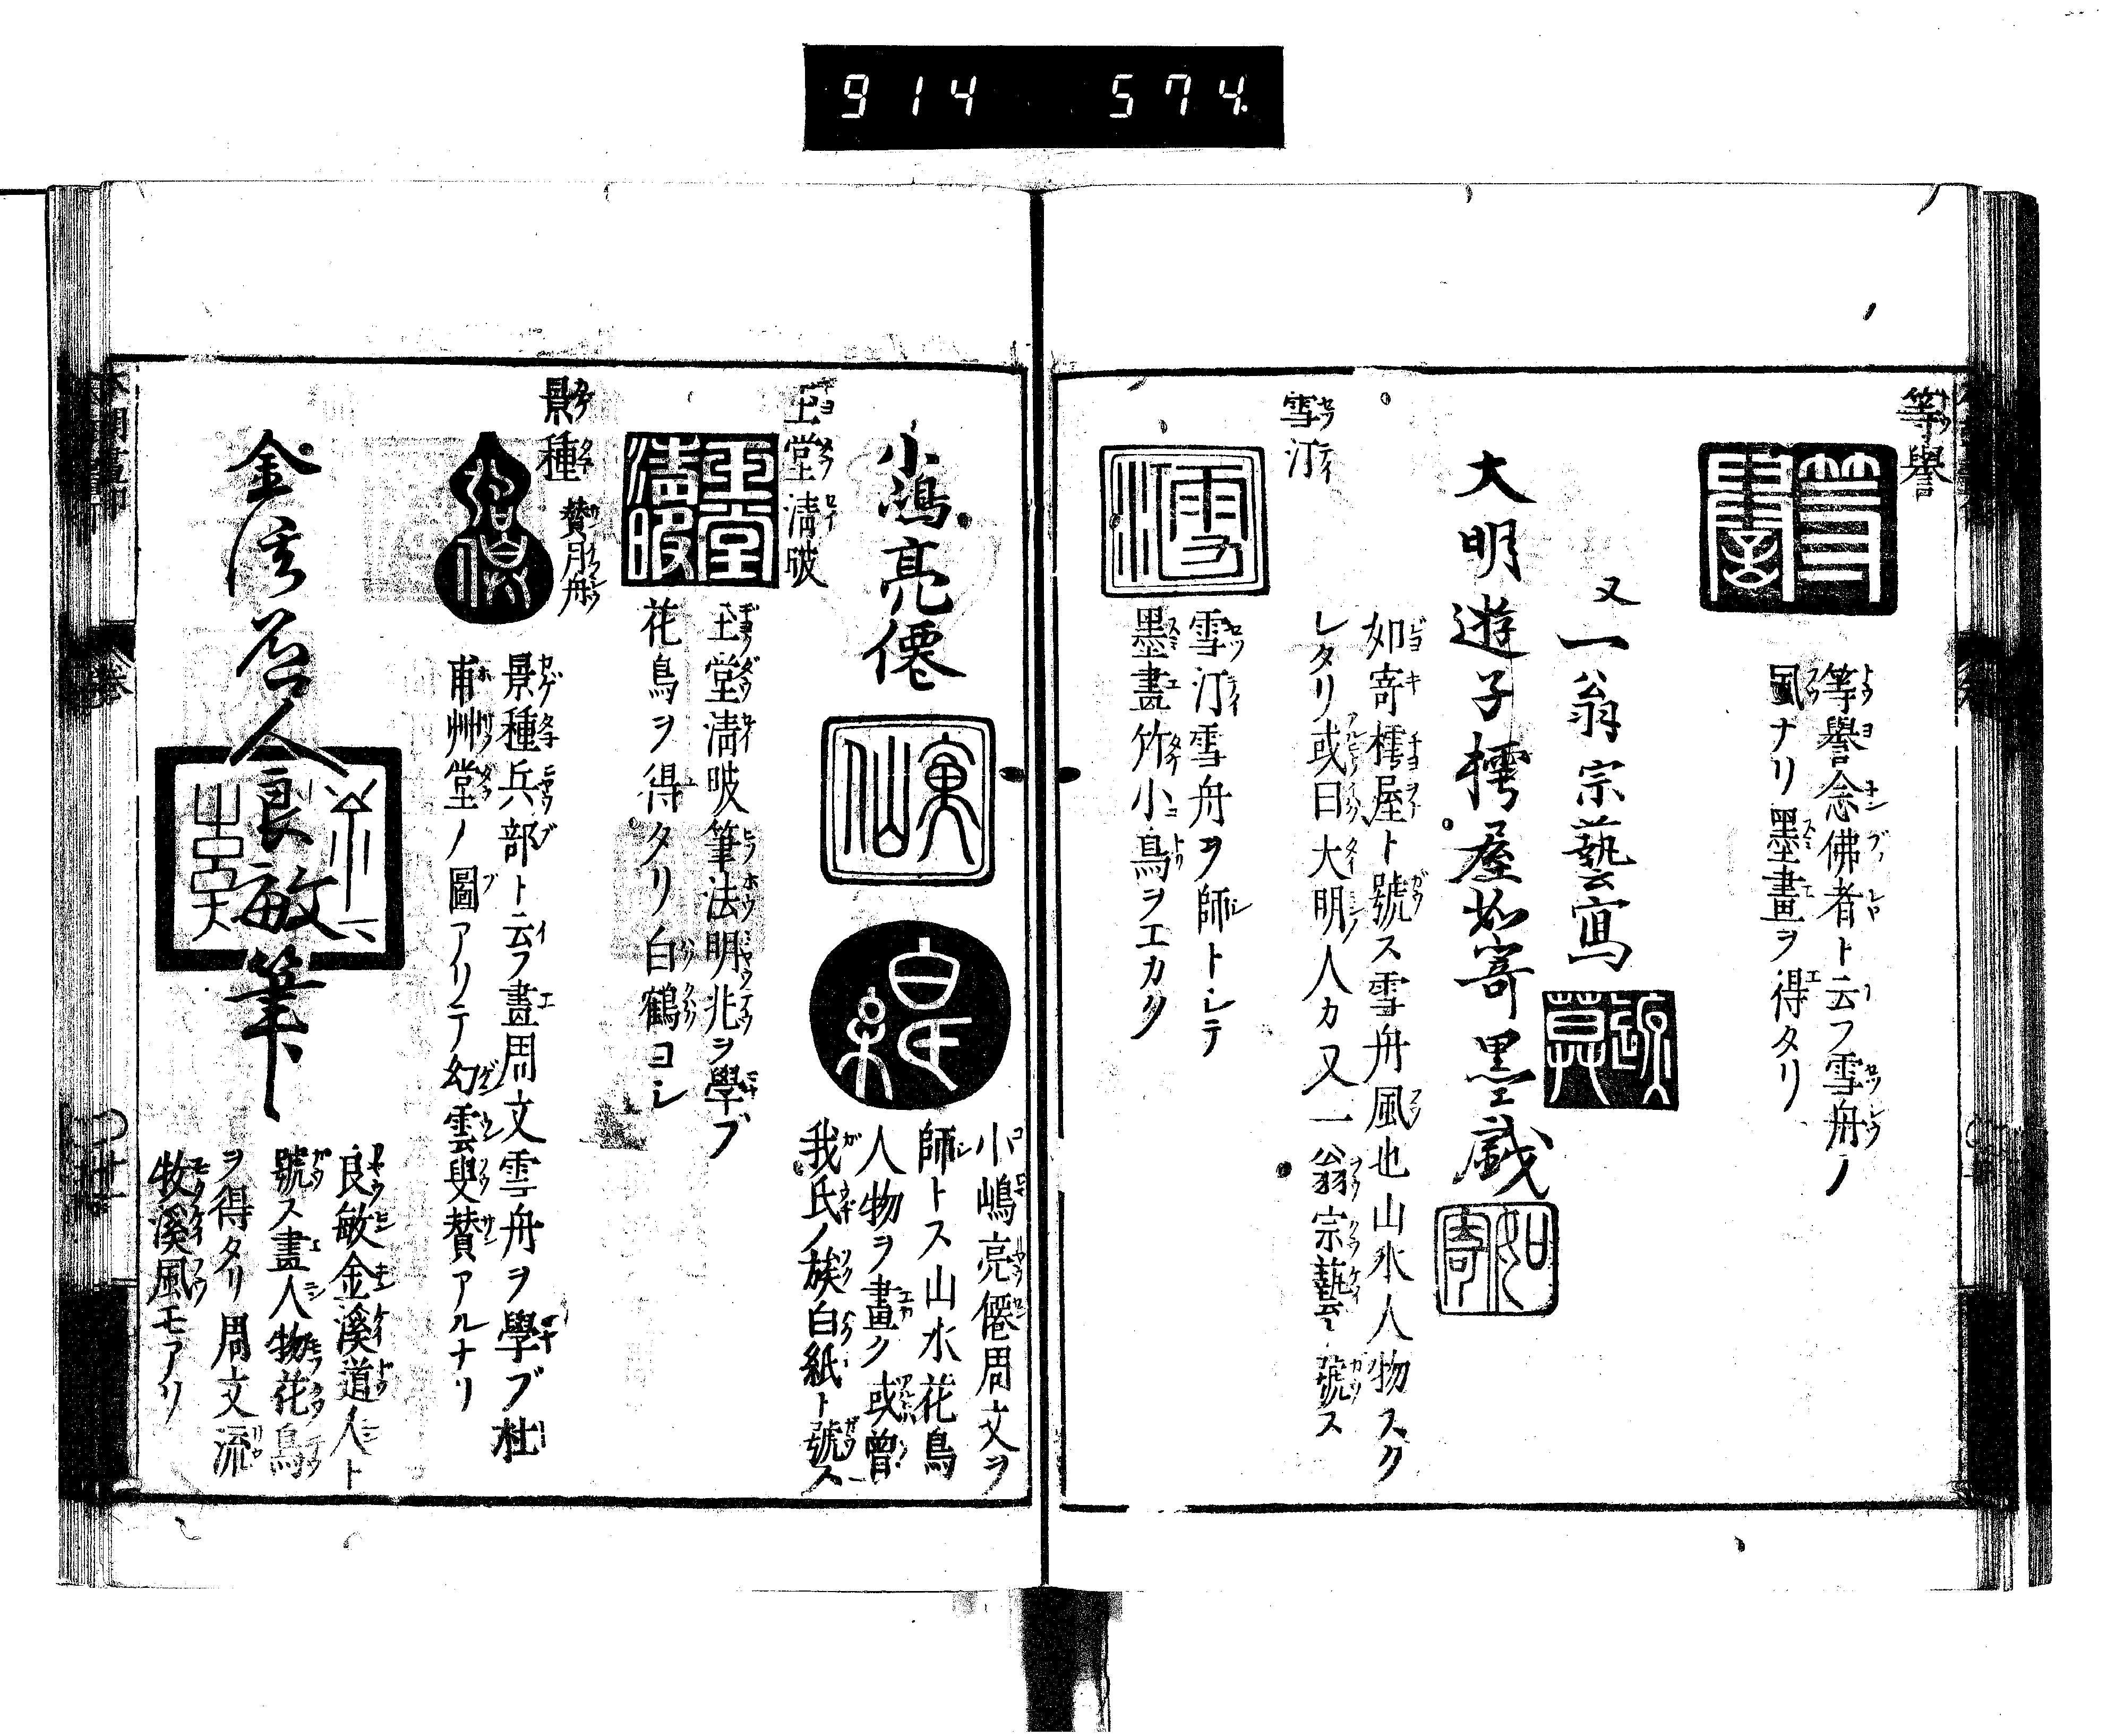 914 574.
等譽
等譽念佛者ト云フ雪舟ノ
風ナリ墨畫ヲ得タリ
又
一翁宗藝寫
大明遊子樗屋如寄墨戯
如寄
如寄樗屋ト號ス雪舟風也山水人物スク
レタリ或曰大明人カ又一翁宗藝ト號ス
雪汀
雪汀
雪汀雪舟ヲ師トシテ
墨畫竹小鳥ヲエカク
小鴻亮僊
寅仙
白紙
小嶋亮僊周文ヲ
師トス山水花鳥
人物ヲ畫ク或曽
我氏ノ族白紙ト號ス
玉堂清㫢
玉堂清㫢筆法明兆ヲ學ブ
花鳥ヲ得タリ白鶴ヨシ
景種 賛月舟
景種兵部ト云フ畫周文雪舟ヲ學ブ杜
甫艸堂ノ圖アリテ幻雲叟賛アルナリ
金溪道人良敏筆
良敏金溪道人ト
號ス畫人物花鳥
ヲ得タリ周文流
牧溪風モアリ